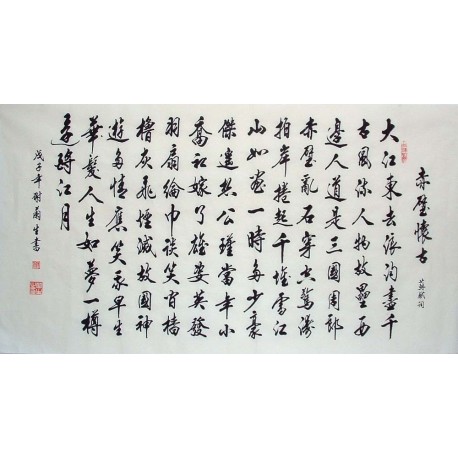 赤壁懷古
蘇軾詞
大江東去浪淘盡千
古風流人物故壘西
邊人道是三國周郎
赤壁亂石穿空驚濤
拍岸捲起千堆雪江
山如畫一時多少豪
傑遙想公瑾當年小
喬初嫁了雄姿英發
羽扇綸巾談笑間檣
櫓灰飛煙滅故國神
遊多情應笑我早生
華髮人生如夢一樽
還酹江月
戊子年生書